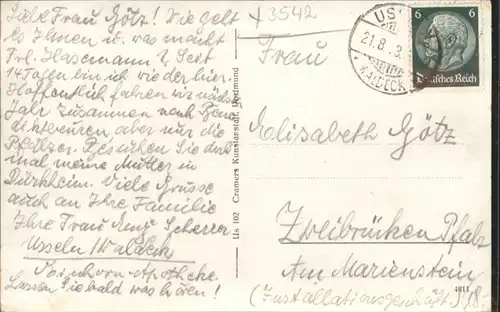 Liebe Frau Götz! Wie geht
es Ihnen u. was macht
Frl. Hasemann? Seit
14 Tagen bin ich wieder hier.
Hoffentlich fahren wir nächstes
Jahr zusammen nach
aber nur die
Pfälzer. Besuchen Sie doch
mal meine Mutter in
Dürkheim. Viele Grüsse
auch an Ihre Familie
Ihre Frau Scherrer
Usseln / Waldeck
Einhorn-Apotheke
Lassen Sie bald was hören!
+3542
Cramers Kunstanstalt, Dortmund
Us 102
US
21.8.3
WALDECK
6 6
Deutsches Reich
Frau
Elisabeth Götz
Zweibrücken Pfalz
Am Marienstein
4611
(Installationsgeschäft)